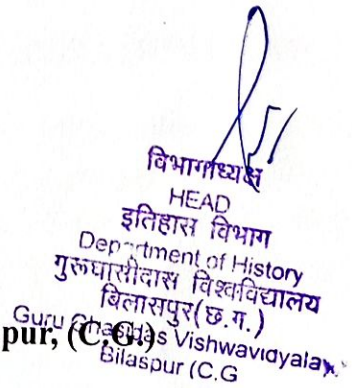 विभागाध्यक्ष
HEAD
इतिहास विभाग
Department of History
गुरूघासीदास विश्वविद्यालय
बिलासपुर(छ.ग.)
pur, (C.G.)
Guru Ghasidas Vishwavidyalay
Bilaspur (C.G